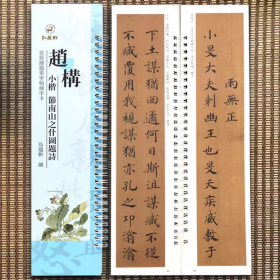 弘蕴轩
趙構
小楷 節南山之什圖題詩
弘蕴軒 編
雨無正
小旻大夫刺幽王也旻天疾威敷于
下土謀猶回遹何日斯沮謀臧不從
不臧覆用我視謀猶亦孔之邛潝潝